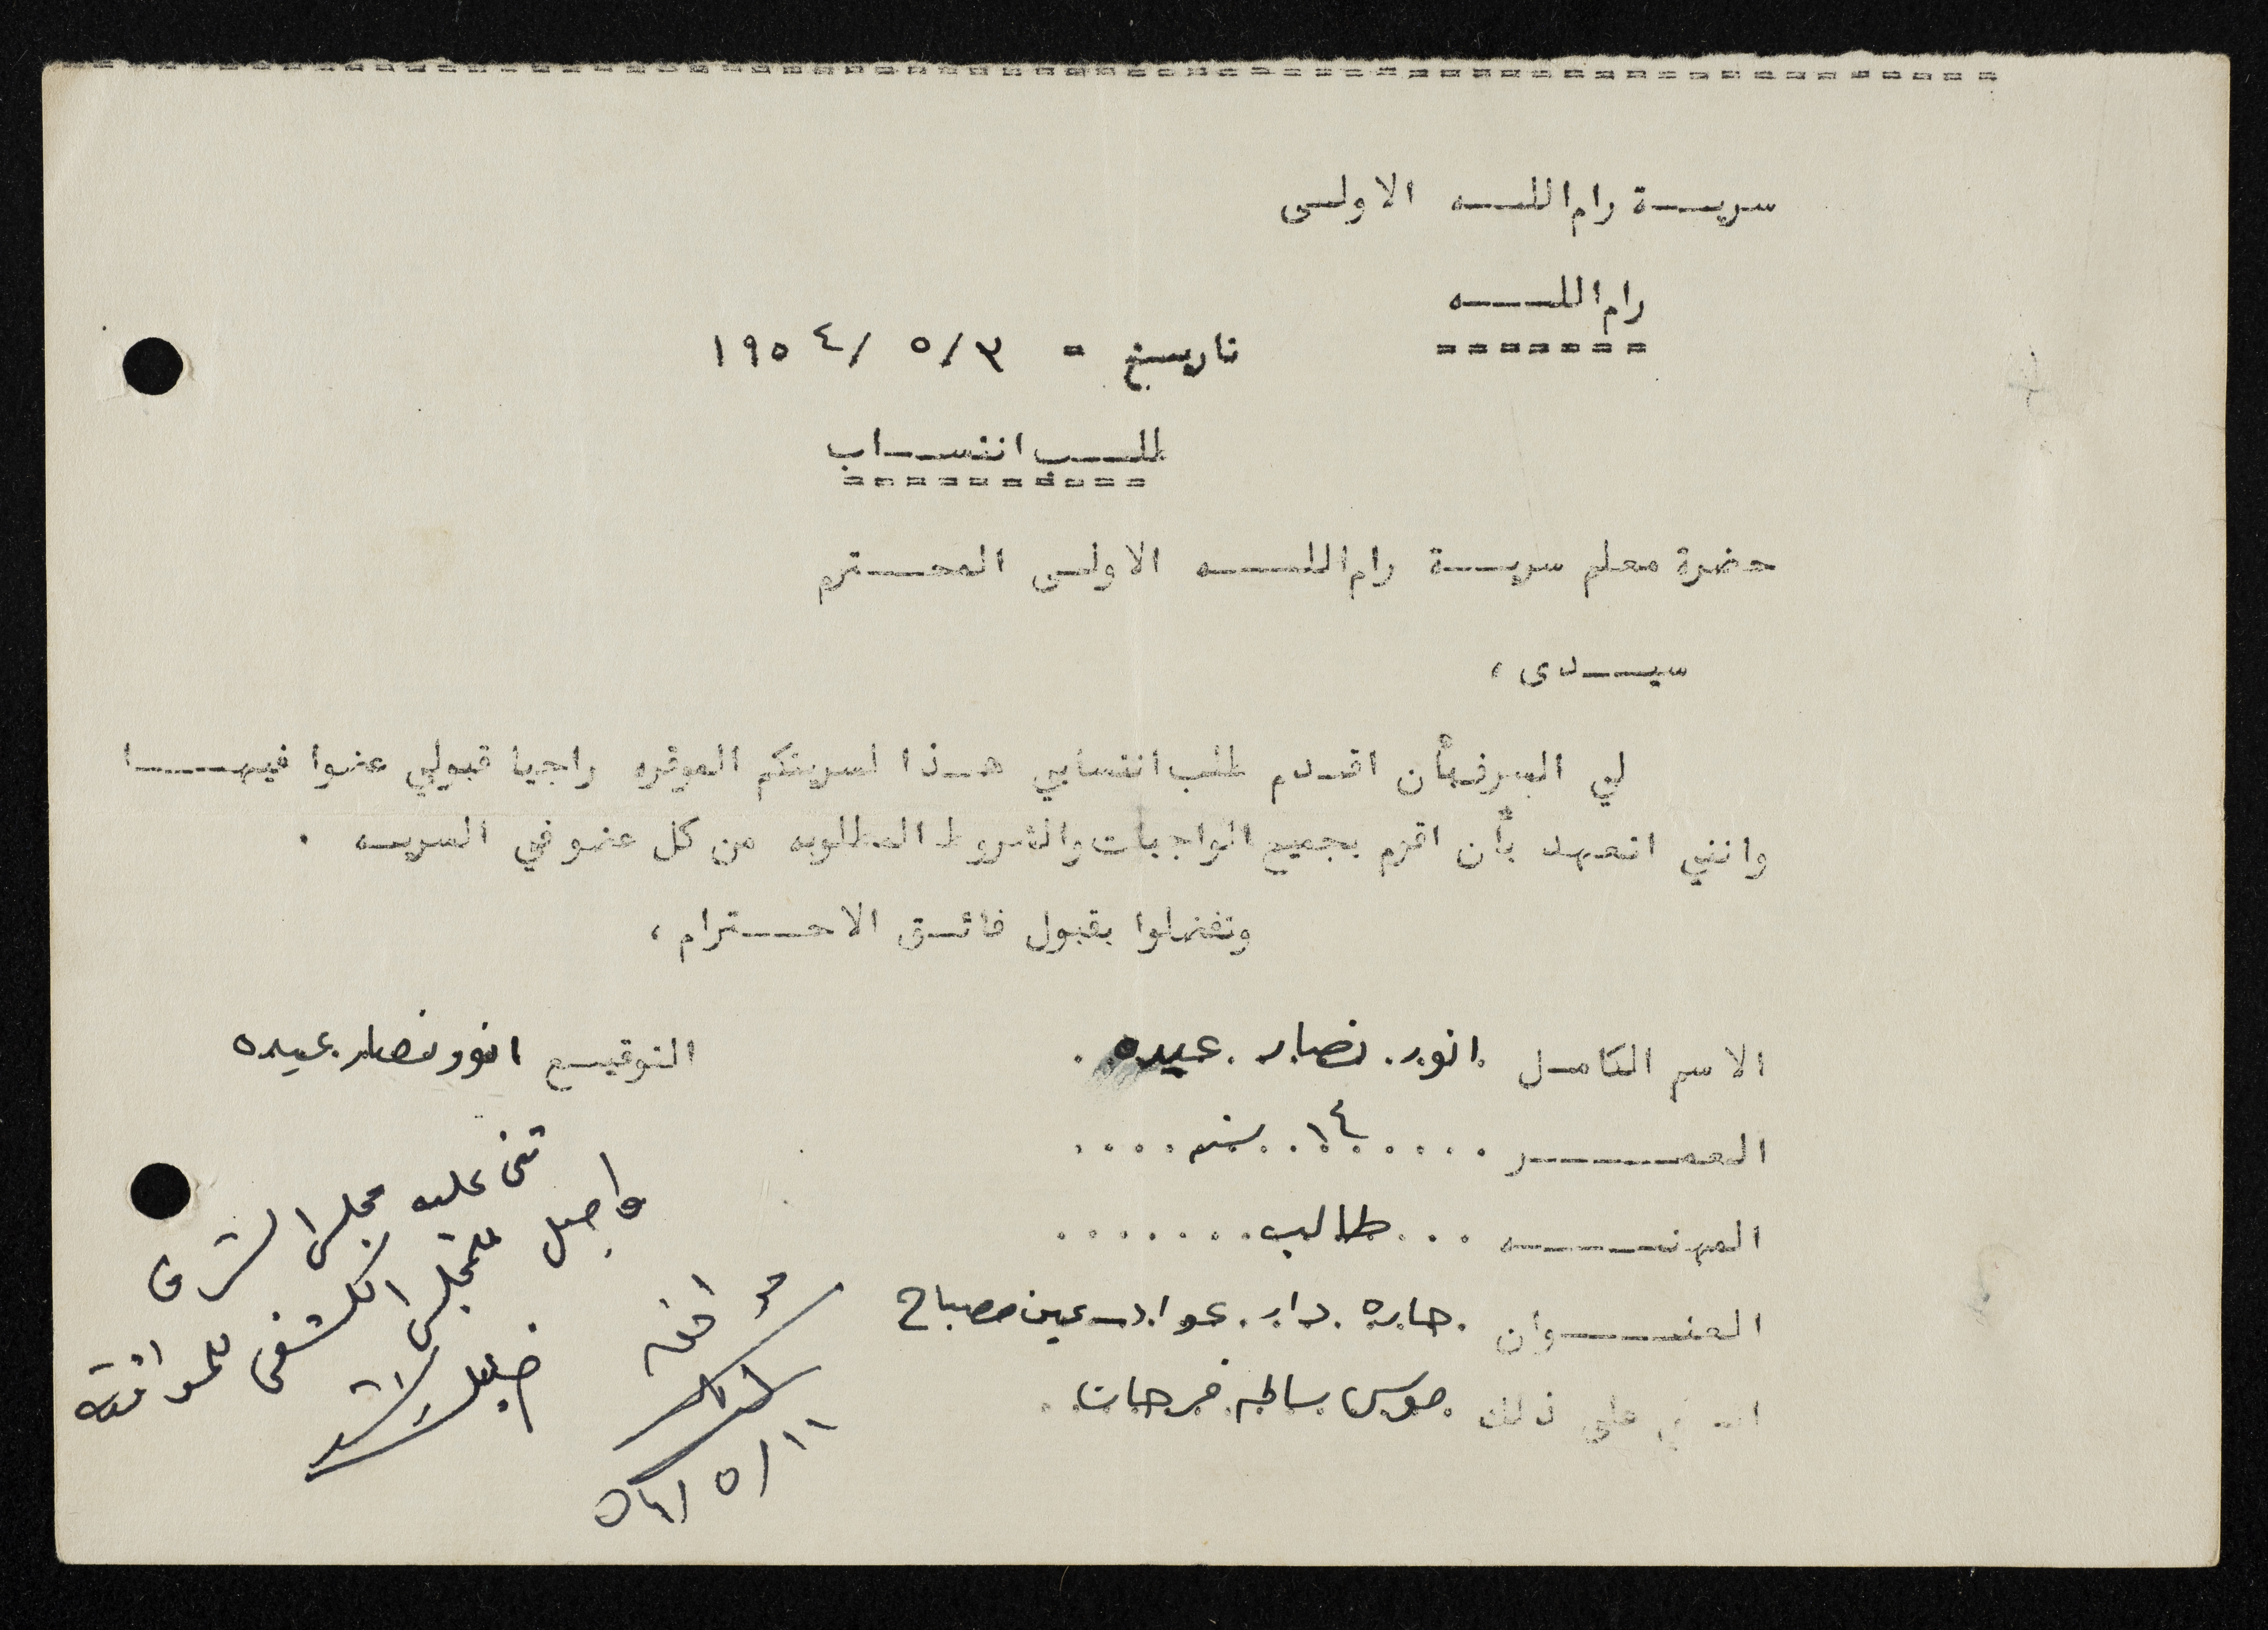 سرية رام الله الاولى
رام الله
تاريخ - ٣/ ٥ /١٩٥٤
طلب انتساب
حضرة معلم سرية رام الله الاولى المحترم
سيدى ،
لي الشرف بأن اقدم طلب انتسابي هذا لسريتكم الموقره راجيا قبولي عضوا فيها
وانني اتعهد بأن اقوم بجميع الواجبات والشروط المطلوبه من كل عضو في السريه .
وتفضلوا بقبول فائق الاحترام ،
الاسم الكامل انور نصار عيده
التوقيع انور نصار عيده
العمر ١٤ سنه
المهنه طالب
العنوان حارة دار عواد - عين مصباح
على ذلك موسى سالم فرحات
عليه مجلس الشرف
للمجلس الكشفي للموافقة
اوافق
١١/ ٥ /٥٤